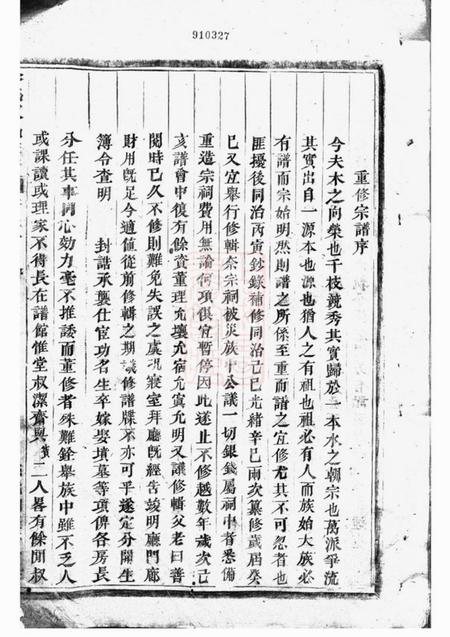 910327
重修宗譜序
今夫木之向榮也千枝競秀其實歸於一本水之朝宗也萬派爭流
其實出自一源本也源也猶人之有祖也祖必有人而族始大族必
有譜而宗始明然則譜之所係至重而譜之宜修尤其不可忽者也
匪擾後同治丙寅鈔錄補修同治己巳光緒辛巳兩次纂修歲屆癸
巳又宜舉行修輯奈宗祠被災族中公議一切銀錢屬祠中者悉備
重造宗祠費用無論何項俱宜暫停因此遂止不修越數年歲次己
亥譜會中復有餘資董理允壤允宿允寅允明又議修輯父老曰善
閱時已久不修則難免失誤之虞況寢室拜廳既經告竣明廳門廊
財用既足今適值從前修輯之期議修譜牒不亦可乎遂定分開生
簿令查明　封誥承襲仕宦功名生卒嫁娶墳墓等項俾各房長
分任其事同心効力毫不推諉而董修者殊難銓舉族中雖不乏人
或課讀或理家不得長在譜館惟堂叔潔齋與 二人畧有餘閒叔